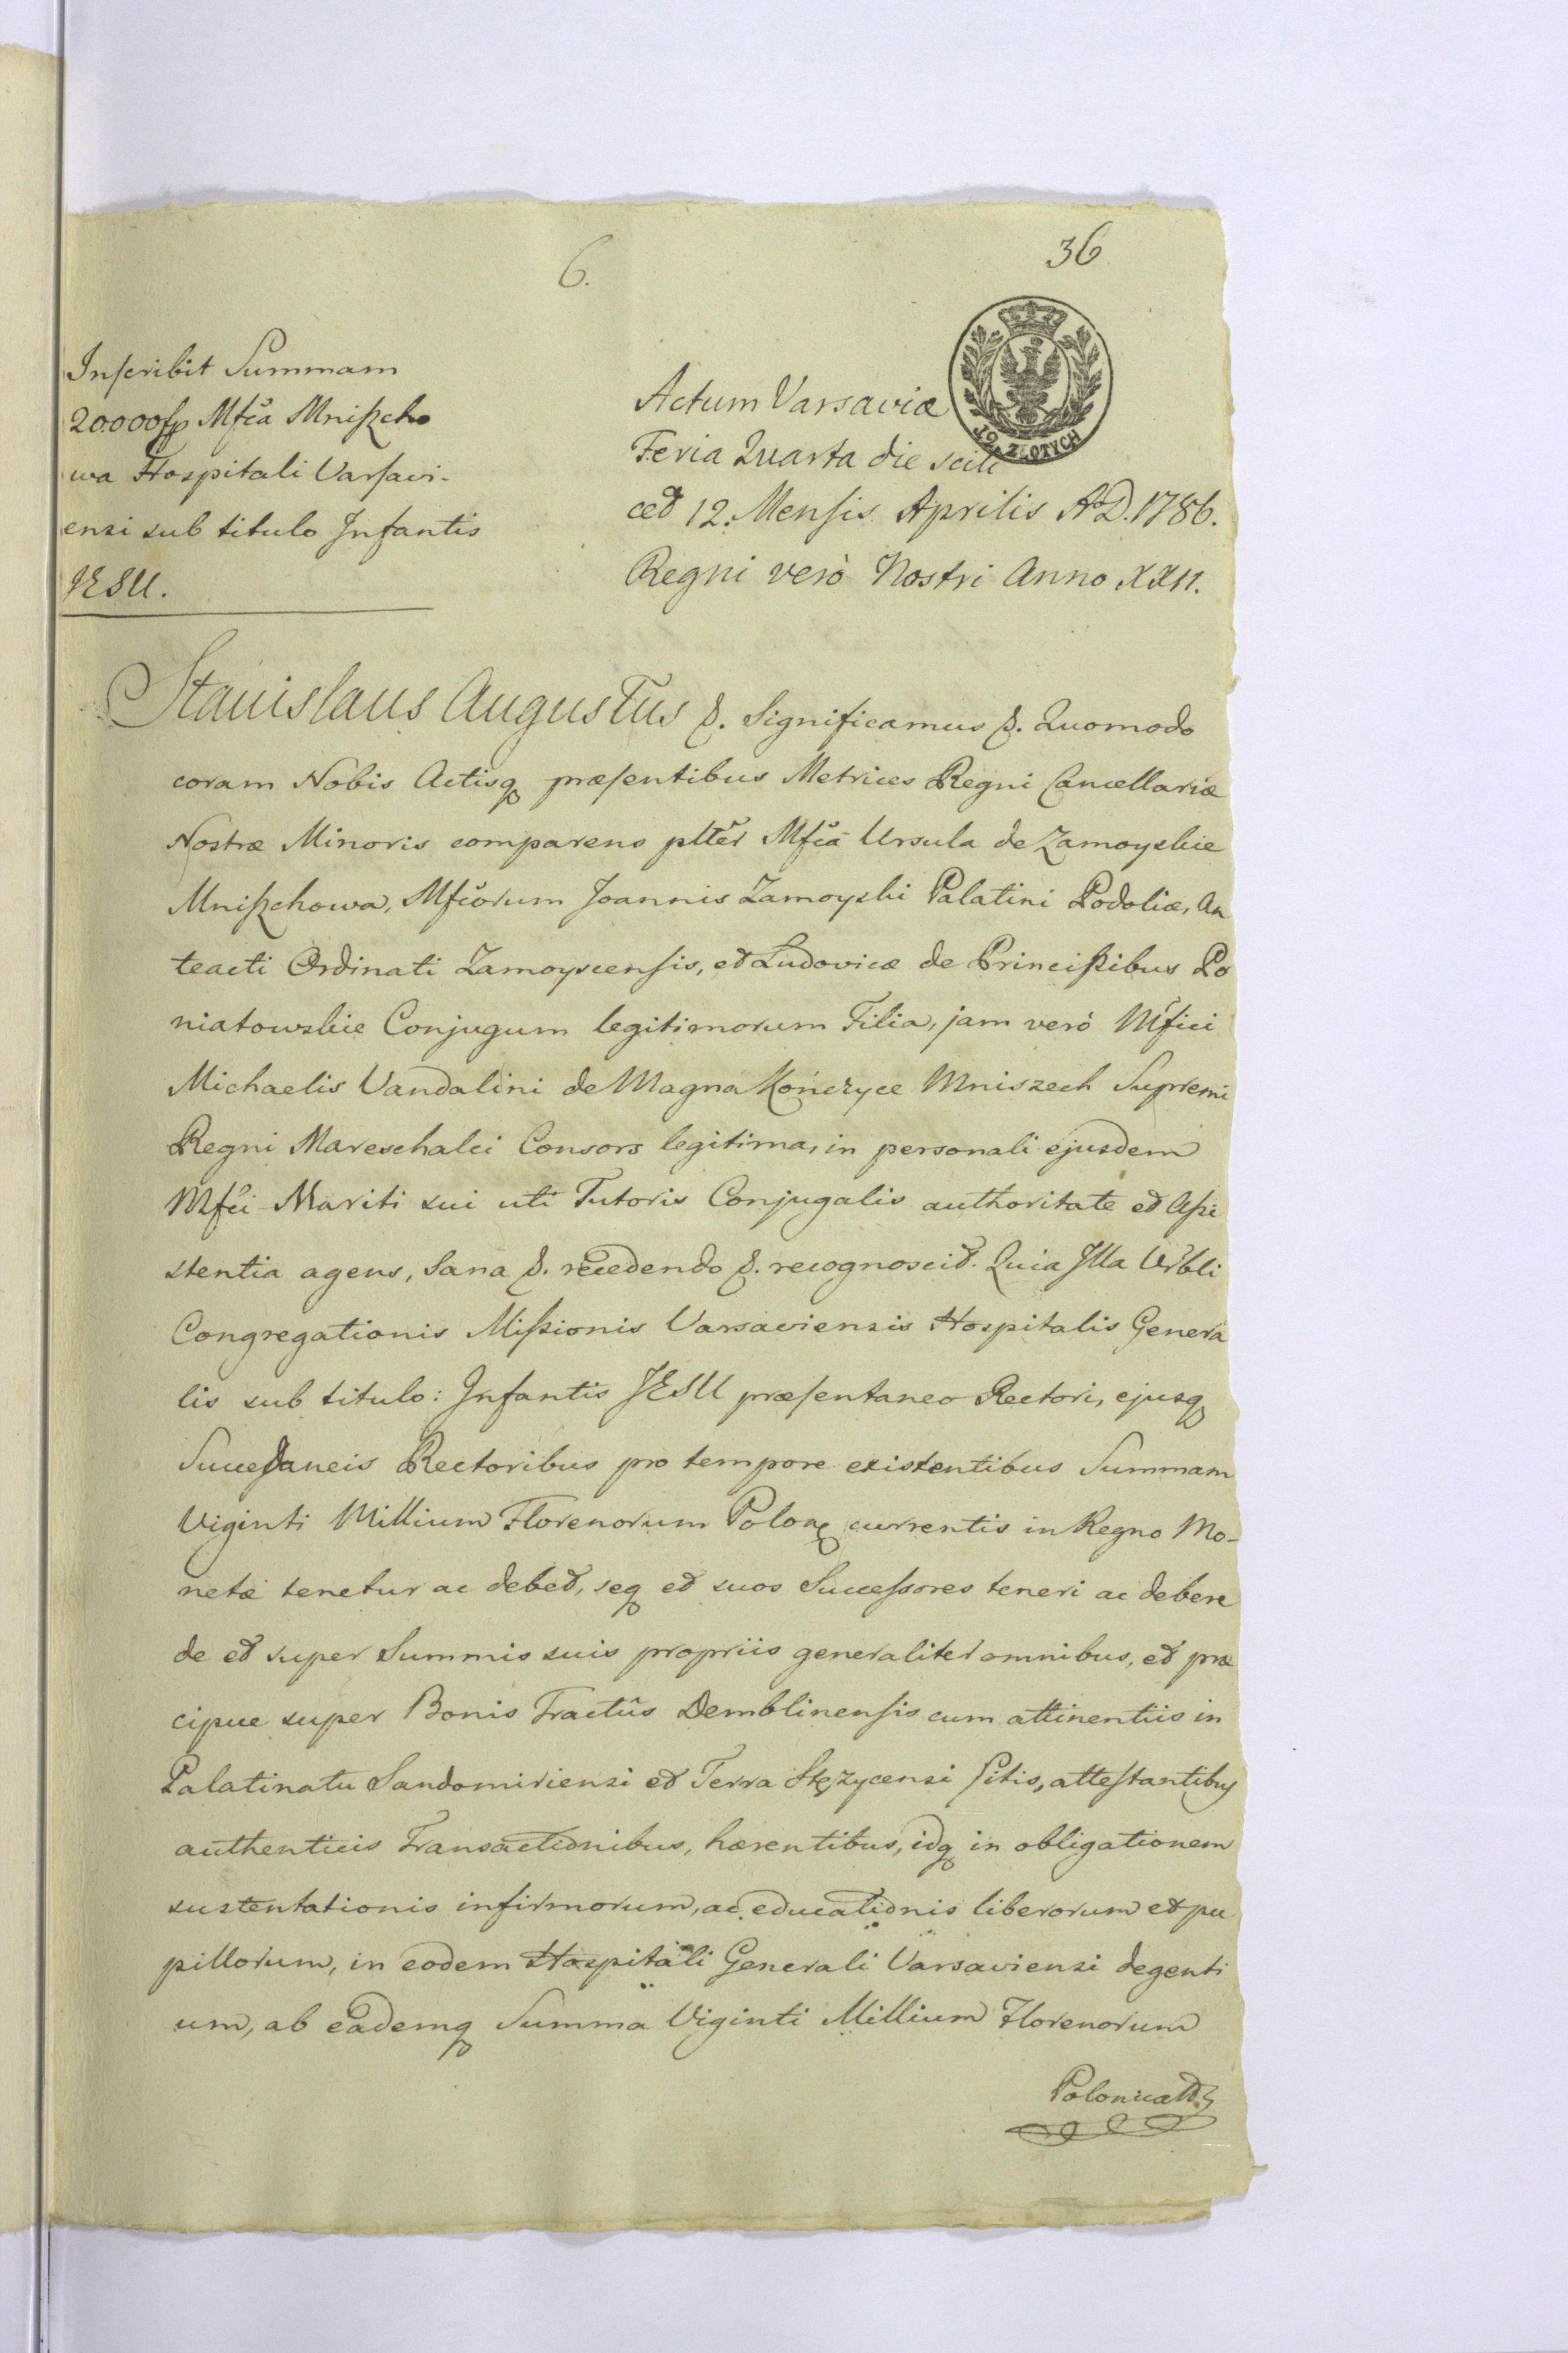 6.
36
Inscribit Summam
20.000 fp Mfca Mniszcho
wa Hospitali Varsavi-
ensi sub titulo Infantis
JESU.
Actum Varsaviæ
Feria Quarta die scili
cet 12. Mensis Aprilis A.D. 1786.
Regni verò Nostri Anno XXII.
12 ZŁOTYCH
Stanislaus Augustus &. Significamus &. Quomodo
coram Nobis Actisq præsentibus Metrices Regni Cancellariæ
Nostræ Minoris comparens plter Mfca Ursula de Zamoyskie
Mniszchowa, Mfcorum Joannis Zamoyski Palatini Podoliæ, An
teacti Ordinati Zamoyscensis, et Ludovicæ de Principibus Po
niatowskie Conjugum legitimorum Filia, jam verò Mfici
Michaelis Vandalini de Magna Kończyce Mniszech Supremi
Regni Mareschalci Consors legitima, in personali ejusdem
Mfci Mariti sui uti Tutoris Conjugalis authoritate et Assi
stentia agens, Sana &. recedendo &. recognoscit. Quia Illa Vrbli
Congregationis Missionis Varsaviensis Hospitalis Genera
lis sub titulo: Infantis JESU præsentaneo Rectori, ejusq
Succedaneis Rectoribus pro tempore existentibus Summam
Viginti Millium Florenorum Polon currentis in Regno Mo-
netæ tenetur ac debet, seq et suos Successores teneri ac debere
de et super Summis suis propriis generaliter omnibus, et præ
cipue super Bonis Tractûs Demblinensis cum attinentiis in
Palatinatu Sandomiriensi et Terra Stężycensi sitis, attestantibus
authenticis Transactionibus, hærentibus, idq in obligationem
sustentationis infirmorum, ac educationis liberorum et pu
pillorum, in eodem Hospitali Generali Varsaviensi degenti
um, ab eademq Summa Viginti Millium Florenorum